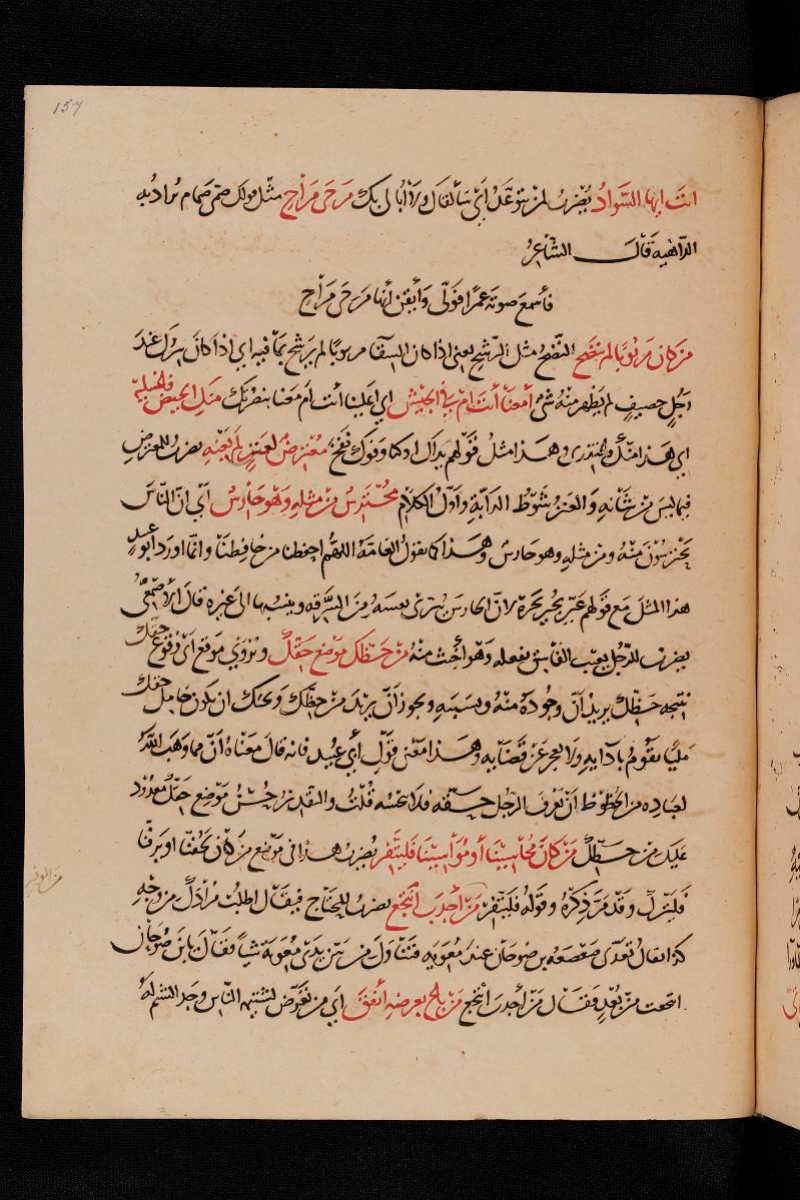 157
انت ايها السواد يضرب لمن يتوعد اي سألقاك ولا أبالي بك مرحى مراح مثل قولك صمى صمام يراد به
الداهية قال الشاعر
فأسمع صوته عمرا فولى وأيقن أنها مرحى مراح
من كان مربوبا لم ينضح النضح مثل الرشح يعنى اذا كان السقا مربوبا لم يرشح بما فيه اي اذا كان سرك عند
رجل حصيف لم يظهر منه شئ أمعنا أنت ام في الجيش اي اعلينا أنت ام معنا بنصرتك
اي هذا مثل وهذا مثل قولهم يداك اوكتا وفوك نفخ معترض لعنن لم يعنه يضرب للمعترض
فيما ليس من شانه والعنن شوط الدابة واول الكلام محترس من مثله وهو حارس اي ان الناس
يحترسون منه ومن مثله وهو حارس وهذا كما يقول العامة اللهم احفظنا من حافظنا وانما اورد ابو عبيد
هذا المثل مع قولهم عير بجير بجرة لان الحارس يبرئ نفسه من السرقة وينسبها الى غيره قال الاصمعي
يضرب للرجل يعيب الفاسق بفعله وهو أخبث منه من حظك موضع حقك ويروى موقع اي وقوع حقك
نتيجه حظك يريد ان وجوده منه وبسببه ويجوز أن يريد من حظك وبختك ان يكون حامل حقك
مليا يقوم بادايه ولا يعجز عن قضايه وهذا معنى قول أبي عبيد فانه قال معناه أن مما وهب الله
لعباده من الحظوظ أن يعرف الرجل حقه فلا يخسه قلت والتقدير حسن موضع حقك معدود
عليك من حظك من كان محاسينا أو مواسينا فليتفر يضرب هذا في موضع من كان يحفنا او يرفنا
فليترك وقد مر ذكره وقوله فليتفر من أجدب انتجع يضرب للمحتاج فيقال اطلب مرادك من وجهه
كذا يقال تغدى صعصعة بن صوحان عند معوية فتناول من بين يدي معوية شيا فقال يا بن صوحان
انتجعت من بعد فقال من أجدب انتجع من يلح بعرضه أنفق اي من تعرض لشتيمه الناس وجد الشتم له
من الوفر